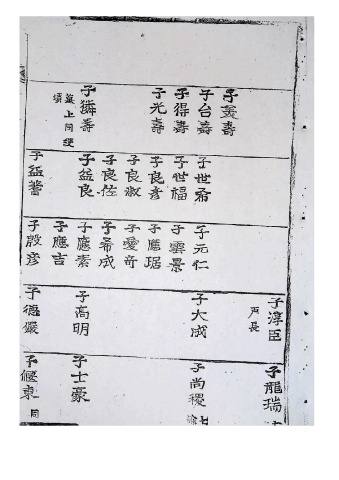 子台壽
子得壽
子光壽
子獜壽
子世希
子世福
子良彦
子良淑
子良佐
子益良
子益
子元仁
子雲景
子應琚
子愛奇
子希成
子應素
子應吉
子殷彦
子淳臣
戶長
子大成
子高明
子德嚴
子龍瑞
子尚稷
子士豪
同